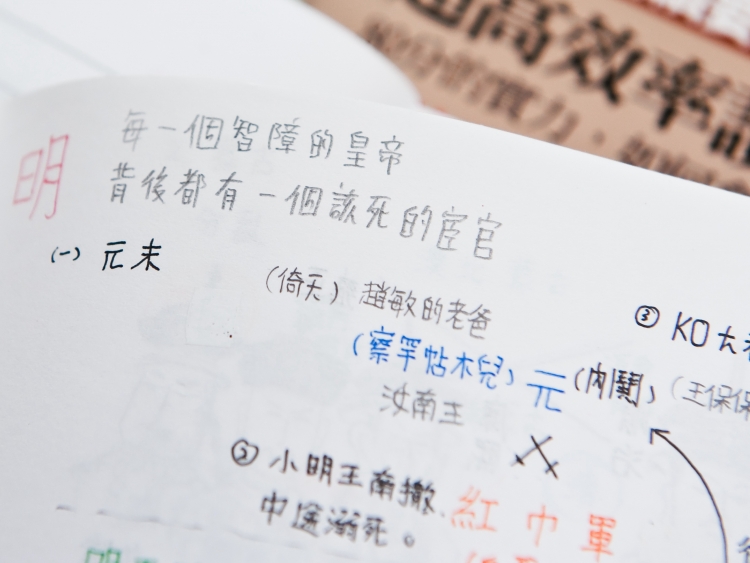 超高效率
的實力、
明
每一個智障的皇帝
背後都有一個該死的宦官
(一) 元末
(倚天) 趙敏的老爸
③ KO大
(察罕帖木兒) 元 (內鬨) (王保保
汝南王
② 小明王南撤、
中途溺死。
紅巾軍